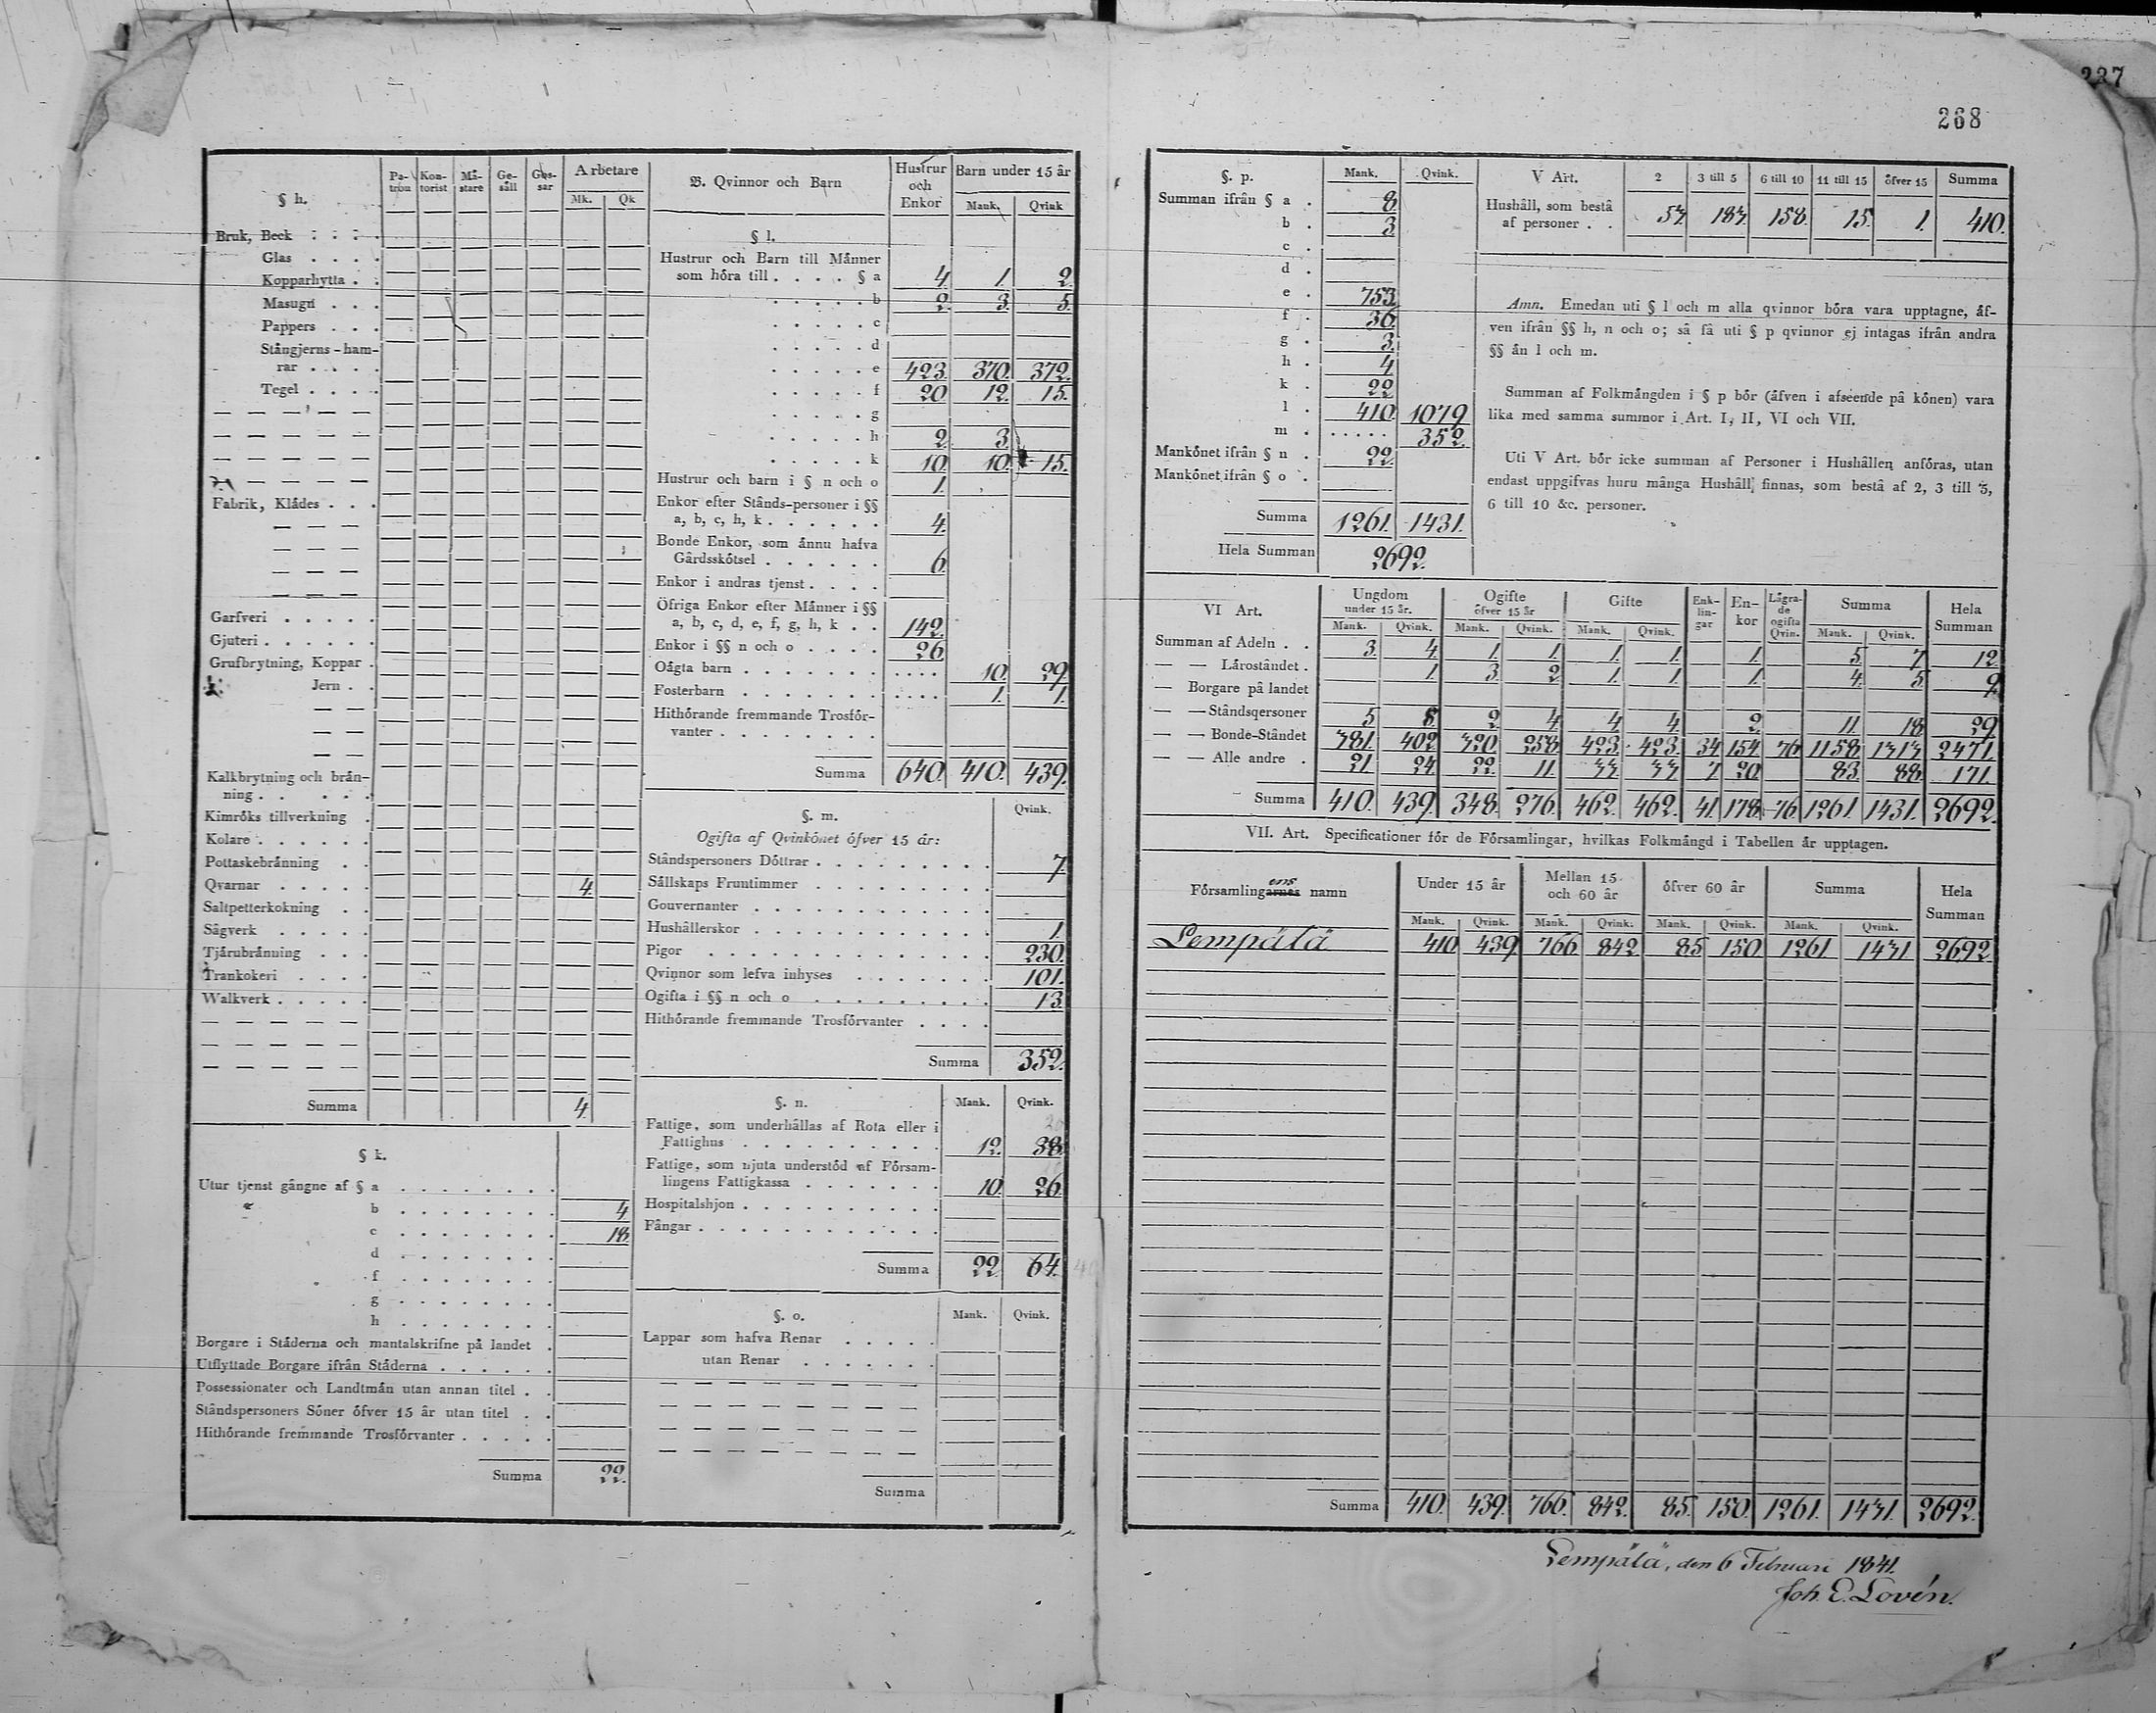 237
268
§ h.
Pa-tron Kon-torist Må-stare Ge-såll Gos-sar Arbetare
Mk. Qk
Bruk, Beck . . . .
Glas . . . .
Kopparhytta . .
Masugn . . .
Pappers . . .
Stångjerns-ham-
rar . . . .
Tegel . . . .
Fabrik, Klådes . . .
Garfveri . . . . .
Gjuteri . . . . . .
Grufbrytning, Koppar .
Jern . .
Kalkbrytning och brån-
ning . . . . . .
Kimröks tillverkning .
Kolare . . . . . .
Pottaskebrånning . .
Qvarnar . . . . . 4.
Saltpetterkokning . .
Sågverk . . . . .
Tjårubrånning . . .
Trankokeri . . . .
Walkverk . . . . .
Summa 4.
§ k.
Utur tjenst gångne af § a . . . . . . . .
b . . . . . . . . 4
c . . . . . . . . 18.
d . . . . . . . .
f . . . . . . . .
g . . . . . . . .
h . . . . . . . .
Borgare i Ståderna och mantalskrifne på landet .
Utflyttade Borgare ifrån Ståderna . . . . .
Possessionater och Landtmån utan annan titel . .
Ståndspersoners Söner öfver 15 år utan titel . .
Hithörande fremmande Trosförvanter . . . . .
Summa 22.
B. Qvinnor och Barn
Hustrur och Enkor Barn under 15 år
Mank. Qvink
§ l.
Hustrur och Barn till Månner
som höra till . . . . § a 4. 1. 2.
. . . . . b 2. 3. 5.
. . . . . c
. . . . . d
. . . . . e 423. 370. 372.
. . . . . f 20 12. 15.
. . . . . g
. . . . . h 2. 3.
. . . . . k 10. 10. 15.
Hustrur och barn i § n och o 1.
Enkor efter Stånds-personer i §§
a, b, c, h, k . . . . . . 4.
Bonde Enkor, som ånnu hafva
Gårdsskötsel . . . . . . 6.
Enkor i andras tjenst . . . .
Öfriga Enkor efter Månner i §§
a, b, c, d, e, f, g, h, k . . 142.
Enkor i §§ n och o . . . . 26.
Oågta barn . . . . . . . . . . . 10. 29.
Fosterbarn . . . . . . . . . . . 1. 1.
Hithörande fremmande Trosför-
vanter . . . . . . . .
Summa 640. 410. 439.
§. m.
Qvink.
Ogifta af Qvinkönet öfver 15 år:
Ståndspersoners Döttrar . . . . . . . . . 7.
Sållskaps Fruntimmer . . . . . . . . .
Gouvernanter . . . . . . . . . . . .
Hushållerskor . . . . . . . . . . . . 1.
Pigor . . . . . . . . . . . . . . 230.
Qvinnor som lefva inhyses . . . . . . . 101.
Ogifta i §§ n och o . . . . . . . . . 13.
Hithörande fremmande Trosförvanter . . . .
Summa 352.
§. n. Mank. Qvink.
Fattige, som underhållas af Rota eller i
Fattighus . . . . . . . . . 12. 38.
Fattige, som njuta understöd af Försam-
lingens Fattigkassa . . . . . . . 10. 26.
Hospitalshjon . . . . . . . . . .
Fångar . . . . . . . . . . . .
Summa 22. 64.
§. o. Mank. Qvink.
Lappar som hafva Renar . . . . .
utan Renar . . . . . . .
Summa
§. p. Mank. Qvink.
Summan ifrån § a . 8.
b . 3.
c .
d .
e . 753.
f . 36.
g . 3.
h . 4
k . 22
l . 410. 1079
m . . . . . . 352.
Mankönet ifrån § n . 22.
Mankönet ifrån § o .
Summa 1261. 1431.
Hela Summan 2692.
V Art. 2 3 till 5 6 till 10 11 till 15 öfver 15 Summa
Hushåll, som bestå
af personer . . 53. 183. 158. 15. 1. 410.
Amn. Emedan uti § l och m alla qvinnor böra vara upptagne, åf-
ven ifrån §§ h, n och o; så få uti § p qvinnor ej intagas ifrån andra
§§ ån l och m.
Summan af Folkmångden i § p bör (åfven i afseende på könen) vara
lika med samma summor i Art. I, II, VI och VII.
Uti V Art. bör icke summan af Personer i Hushållen anföras, utan
endast uppgifvas huru många Hushåll finnas, som bestå af 2, 3 till 5,
6 till 10 &c. personer.
VI Art. Ungdom under 15 år. Ogifte öfver 15 år Gifte Enk-lin-gar En-kor Lågra-de ogifta Qvin. Summa Hela Summan
Mank. Qvink. Mank. Qvink. Mank. Qvink. Mank. Qvink.
Summan af Adeln . . 3. 4. 1. 1. 1. 1. 1. 5. 7. 12.
— — Låroståndet . 1. 3. 2. 1. 1. 1. 4. 5. 9.
— Borgare på landet
— — Ståndsqersoner 5 8. 2. 4. 4. 4. 2. 11. 18. 29.
— — Bonde-Ståndet 381. 402. 320. 258. 423. 423. 34. 154. 76. 1158. 1313. 2471.
— — Alle andre . 21. 24. 22. 11. 33. 33. 7. 20. 83. 88. 171.
Summa 410. 439. 348. 276. 462. 462. 41. 178. 76. 1261. 1431. 2692.
VII. Art. Specificationer för de Församlingar, hvilkas Folkmångd i Tabellen år upptagen.
ens
Församlingarnes namn Under 15 år Mellan 15 och 60 år öfver 60 år Summa Hela Summan
Mank. Qvink. Mank. Qvink. Mank. Qvink. Mank. Qvink.
Lempälä 410 439. 766. 842. 85. 150. 1261. 1431. 2692.
Summa 410. 439. 766. 842. 85. 150. 1261. 1431. 2692.
Lempälä, den 6 Februari 1841.
Joh. E. Lovén.